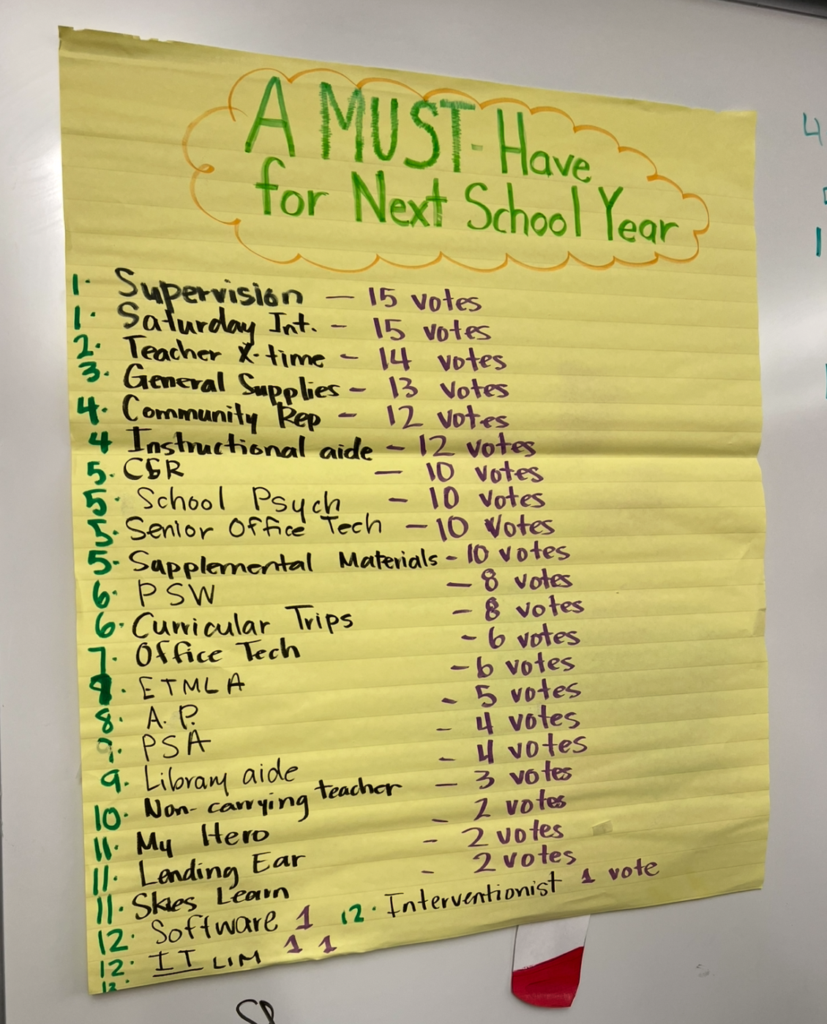 A MUST-Have
for Next School Year
1. Supervision – 15 votes
1. Saturday Int. – 15 votes
2. Teacher X-time – 14 votes
3. General Supplies – 13 votes
4. Community Rep – 12 votes
4 Instructional aide – 12 votes
5. CSR – 10 votes
5. School Psych – 10 votes
5. Senior Office Tech – 10 votes
5. Supplemental Materials - 10 votes
6. PSW – 8 votes
6. Curricular Trips – 8 votes
7. Office Tech - 6 votes
7. ETMLA – 6 votes
8. A.P. - 5 votes
9. PSA - 4 votes
9. Library aide - 4 votes
10. Non-carrying teacher – 3 votes
11. My Hero - 2 votes
11. Lending Ear - 2 votes
11. Skies Learn - 2 votes
12. Software 1 12. Interventionist 1 vote
12. IT LIM 1 1
12
4
1